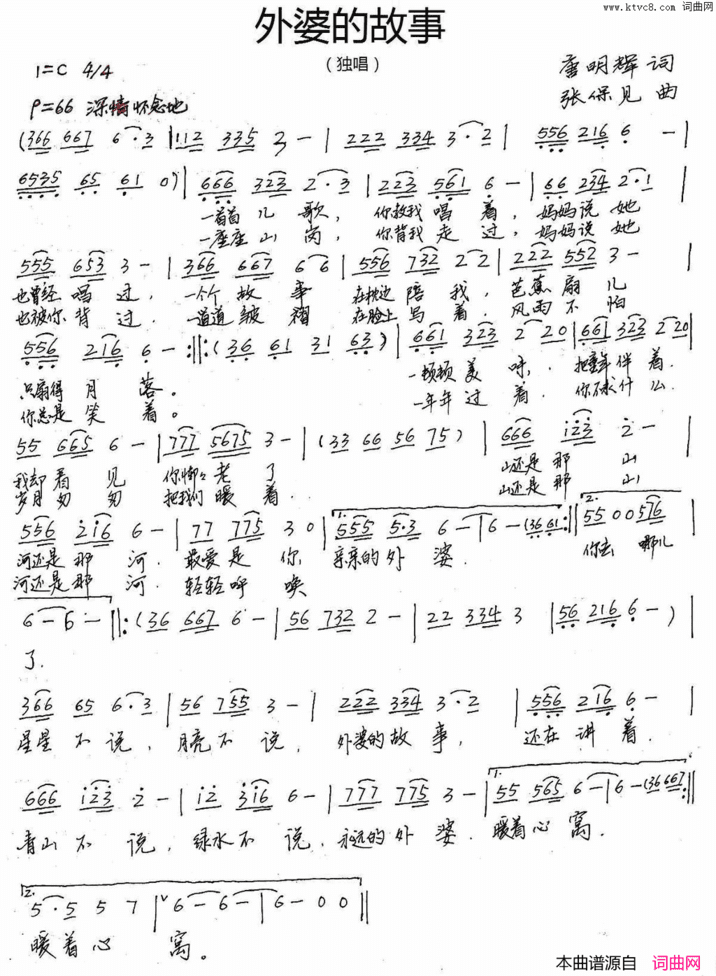 www.ktvc8.com 词曲网
外婆的故事
(独唱)
1=C 4/4 唐明辉 词
♩=66 深情怀念地 张保见 曲
(366 667 6·3 | 112 335 2 — | 222 334 3·2 | 556 216 6 — |
6535 65 61 0) | 666 323 2·3 | 223 561 6 — | 66 234 2·1 |
一首首儿歌, 你教我唱着, 妈妈说她
一座座山岗, 你背我走过, 妈妈说她
555 653 3 — | 366 667 6 6 | 556 732 2 2 | 222 552 3 — |
也曾经唱过, 一个故事 在枕边陪我, 芭蕉扇儿
也被你背过. 一道道皱褶 在脸上写着. 风雨不怕
556 216 6 — :||: (36 61 31 63) | 661 323 2 20 | 661 323 2 20 |
只扇得月落。 一顿顿美味, 把童年伴着.
你总是笑着。 一年年过着. 你不求什么
55 665 6 — | 777 5675 3 — | (33 66 56 75) | 666 123 2 — |
我却看见 你慢慢老了 山还是那山
岁月匆匆 把我们暖着. 山还是那山
556 216 6 — | 77 775 3 0 | 1. 555 5·3 6 — | 6 — (36 61 :|| 2. 55 0 0 576 |
河还是那河. 最爱是你, 亲亲的外婆. 你去哪儿
河还是那河. 轻轻呼唤
6 — 6 — ||: (36 667 6 — | 56 732 2 — | 22 334 3 | 56 216 6 — ) |
了.
366 65 6·3 | 56 755 3 — | 222 334 3·2 | 556 216 6 — |
星星不说, 月亮不说, 外婆的故事, 还在讲着.
666 123 2 — | 12 316 6 — | 777 775 3 — | 1. 55 565 6 — | 6 — (36 667 :||
青山不说, 绿水不说, 永远的外婆. 暖着心窝.
2. 5·5 5 7 | 6 — 6 — | 6 — 0 0 ||
暖着心窝。
本曲谱源自 词曲网